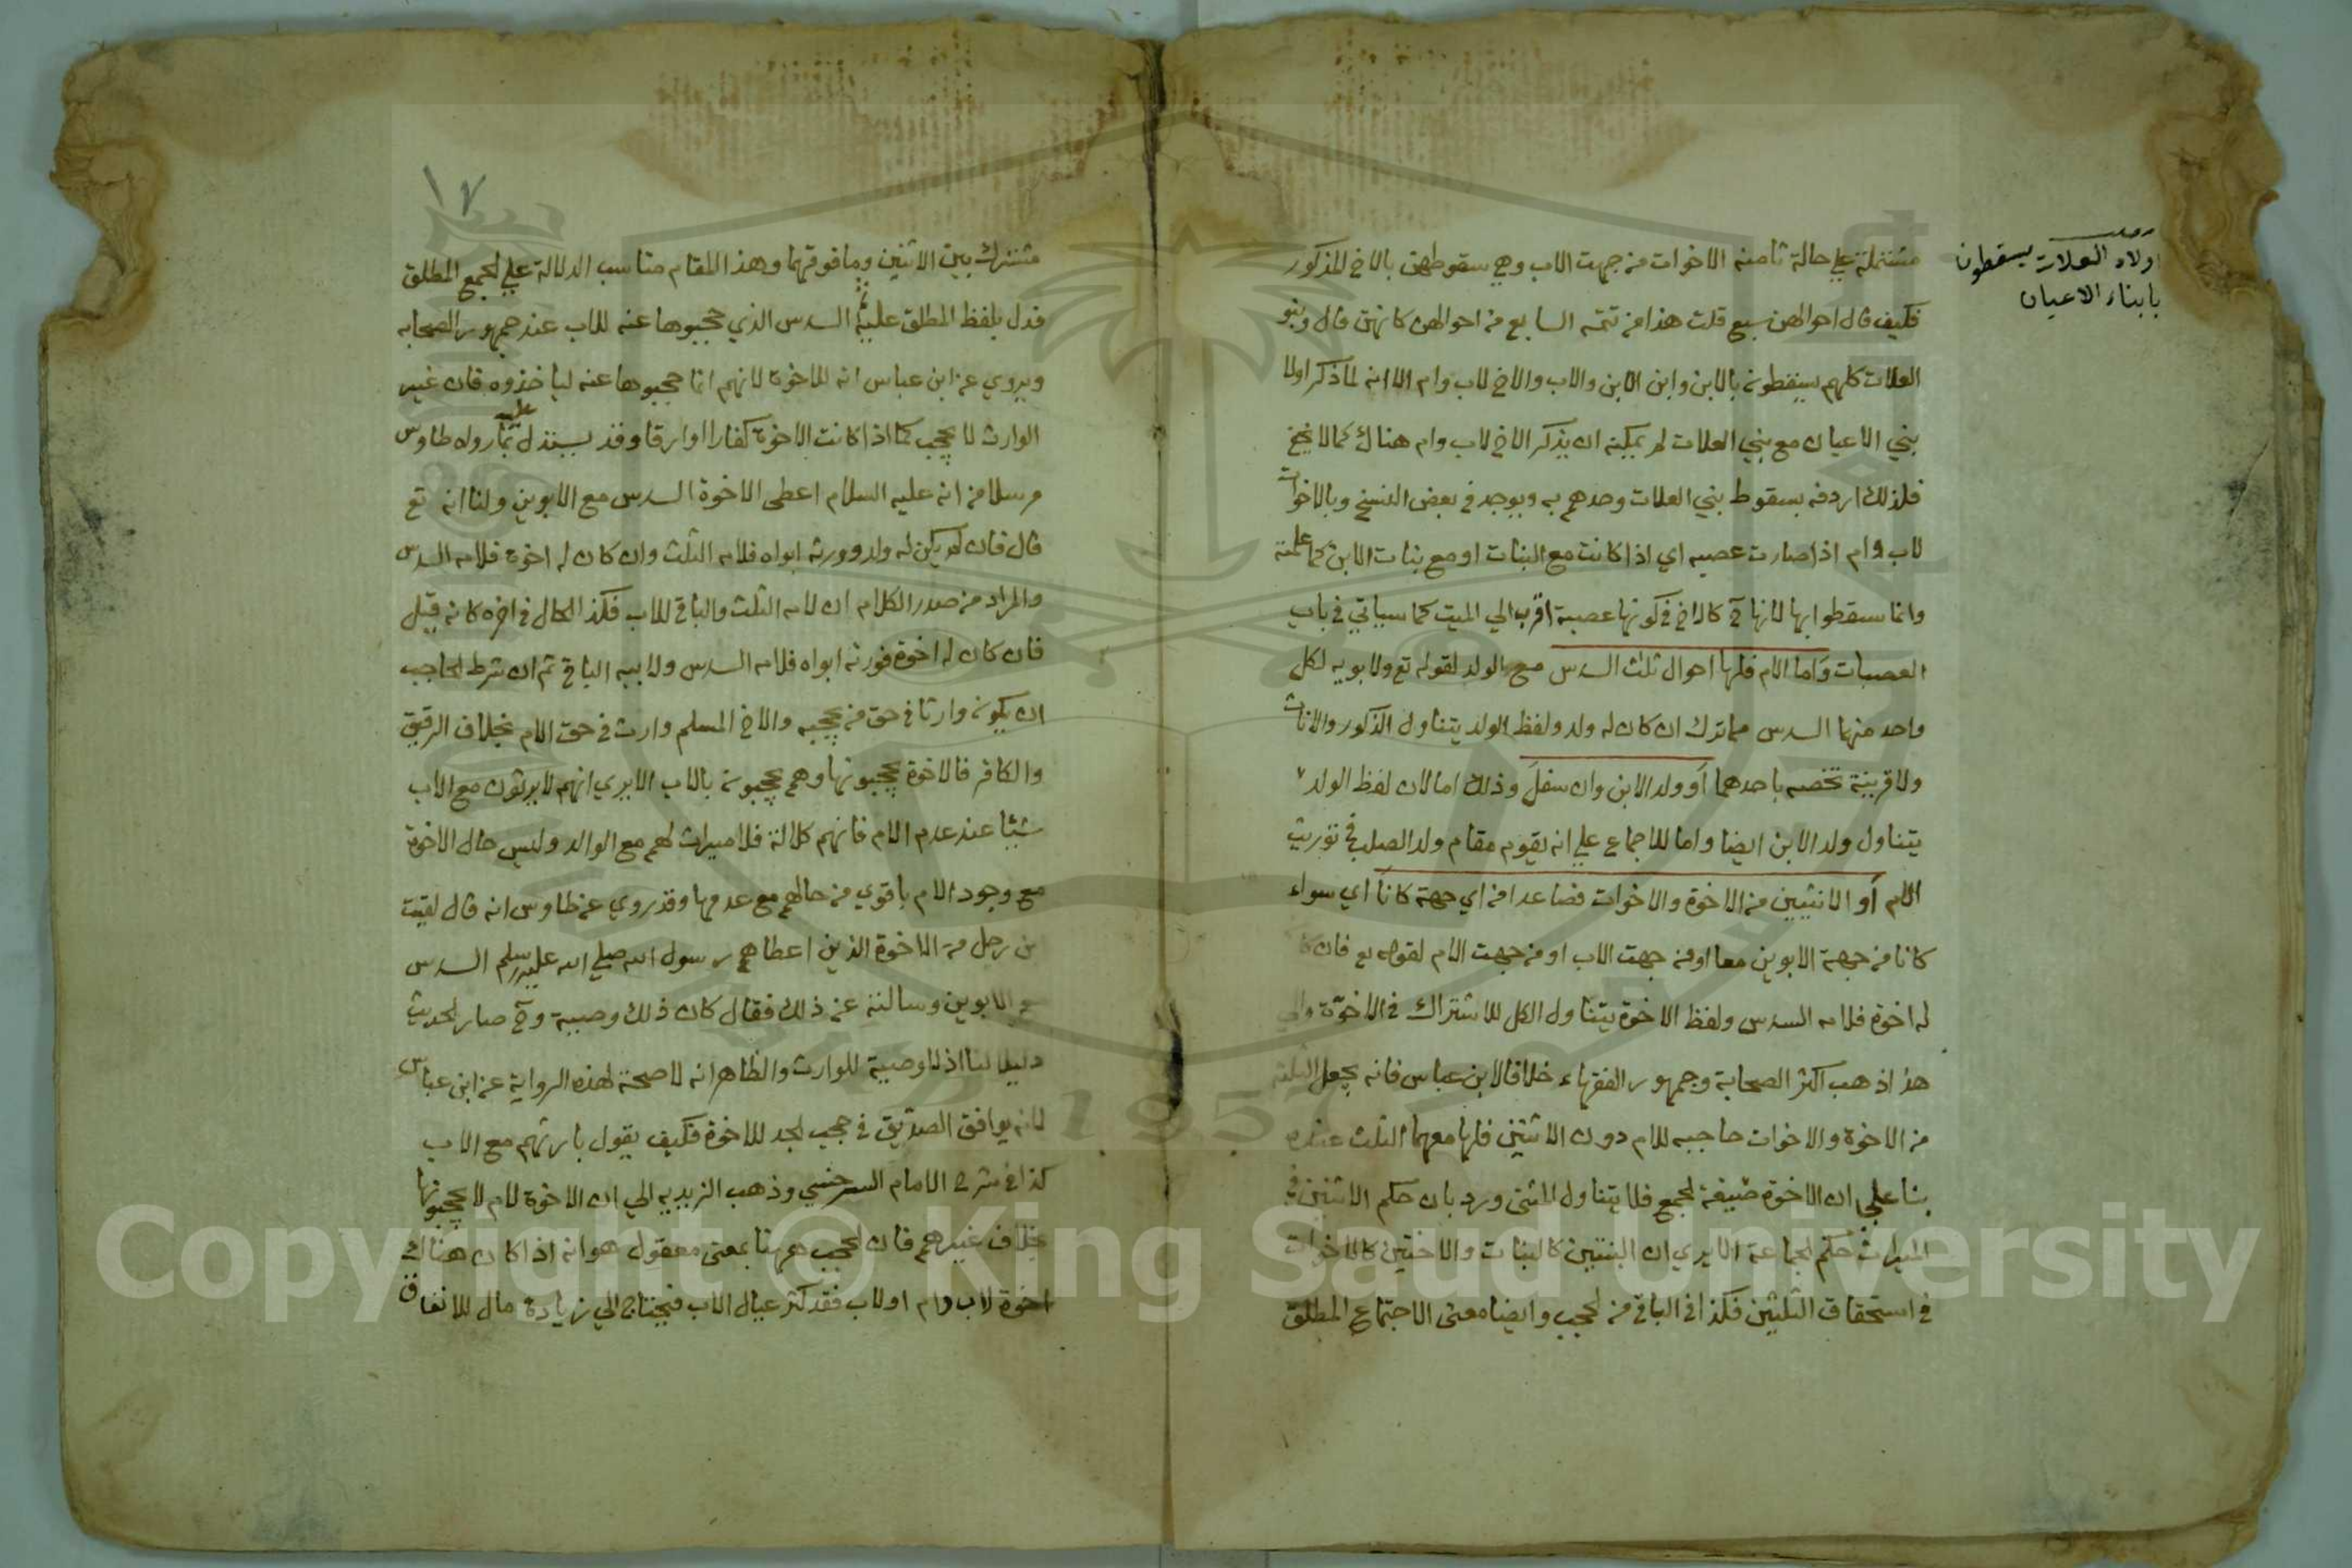 اولاد العلات يسقطون
بابناء الاعيان
مشتملة علي حالة ثامنة الاخوات من جهت الاب وهي سقوطهن بالاخ المذكور
فكيف قال احوالهن سبع قلت هذا من تتمه السابع من احوالهن كانه قال وبنو
العلات كلهم يسقطون بالابن وابن الابن والاب والاخ لاب وام الا انه لما ذكر اولا
بني الاعيان مع بني العلات لم يمكنه ان يذكر الاخ لاب وام هناك كما لا يخفي
فلذلك اردفه بسقوط بني العلات وحدهم به ويوجد في بعض النسخ وبالاخوات
لاب وام اذا صارت عصبه اي اذا كانت مع البنات او مع بنات الابن كما علمته
وانما سقطوا بها لانها ح كالاخ في كونها عصبة اقرب الي الميت كما سياتي في باب
العصبات واما الام فلها احوال ثلث السدس مع الولد لقوله تع ولابويه لكل
واحد منهما السدس مما ترك ان كان له ولد ولفظ الولد يتناول الذكور والاناث
ولا قرينة تخصه باحدهما او ولد الابن وان سفل وذلك اما لان لفظ الولد
يتناول ولد الابن ايضا واما للاجماع علي انه يقوم مقام ولد الصلب في توريث
الام او الاثنين من الاخوة والاخوات فصاعدا من اي جهة كانا اي سواء
كانا من جهة الابوين معا او من جهت الاب او من جهت الام لقوله تع فان كا
له اخوة فلامه السدس ولفظ الاخوة يتناول الكل للاشتراك في الاخوة والي
هذا ذهب اكثر الصحابة وجمهور الفقهاء خلافا لابن عباس فانه يجعل الثلثة
من الاخوة والاخوات حاجبه للام دون الاثنين فلها معهما الثلث عنده
بنا علي ان الاخوة صيغة لجمع فلا يتناول المثنى ورد بان حكم الاثنين في
الميراث حكم لجماعة الا يري ان البنتين كالبنات والاختين كالاخوات
في استحقاق الثلثين فكذا في الباقي من لحجب وايضا معنى الاجتماع المطلق
١٧
مشترك بين الاثنين وما فوقهما وهذا المقام مناسب الدلالة علي لجمع المطلق
فدل بلفظ المطلق عليه ثم السدس الذي حجبوها عنه للاب عند جمهور الصحابه
ويروي عن ابن عباس انه للاخوة لانهم انما حجبوها عنه لياخذوه فان غير
الوارث لا يحجب كما اذا كانت الاخوة كفارا او ارقا وقد يستدل عليه بما رواه طاوس
مرسلا من انه عليه السلام اعطى الاخوة السدس مع الابوين ولنا انه تع
قال فان لم يكن له ولد وورثه ابواه فلامه الثلث وان كان له اخوة فلامه السدس
والمراد من صدر الكلام ان لامه الثلث والباقي للاب فكذا الحال في اخره كانه قيل
فان كان له اخوة فورثه ابواه فلامه السدس ولابيه الباقي ثم ان شرط لحاجب
ان يكون وارثا في حق من يحجبه والاخ المسلم وارث في حق الام بخلاف الرقيق
والكافر فالاخوة يحجبونها وهم يحجبون بالاب الا يري انهم لا يرثون مع الاب
شيئا عند عدم الام فانهم كلالة فلا ميراث لهم مع الوالد وليس حال الاخوة
مع وجود الام باقوي من حالهم مع عدمها وقد روي عن طاوس انه قال لقيت
بن رجل من الاخوة الذين اعطاهم رسول الله صلي الله عليه وسلم السدس
مع الابوين وسالته عن ذلك فقال كان ذلك وصية وح صار لحديث
دليلا لنا اذ لا وصية للوارث والظاهر انه لا صحة لهذه الرواية عن ابن عباس
لانه يوافق الصديق في حجب لجد للاخوة فكيف يقول بارثهم مع الاب
كذا في شرح الامام السرخسي وذهب الزيديه الي ان الاخوة لام لا يحجبونها
بخلاف غيرهم فان لحجب هرهنا بمعنى معقول هو انه اذا كان هناك
اخوة لاب وام او لاب فقد كثر عيال الاب فيحتاج الي زيادة مال للانفاق
Copyright © King Saud University
1957